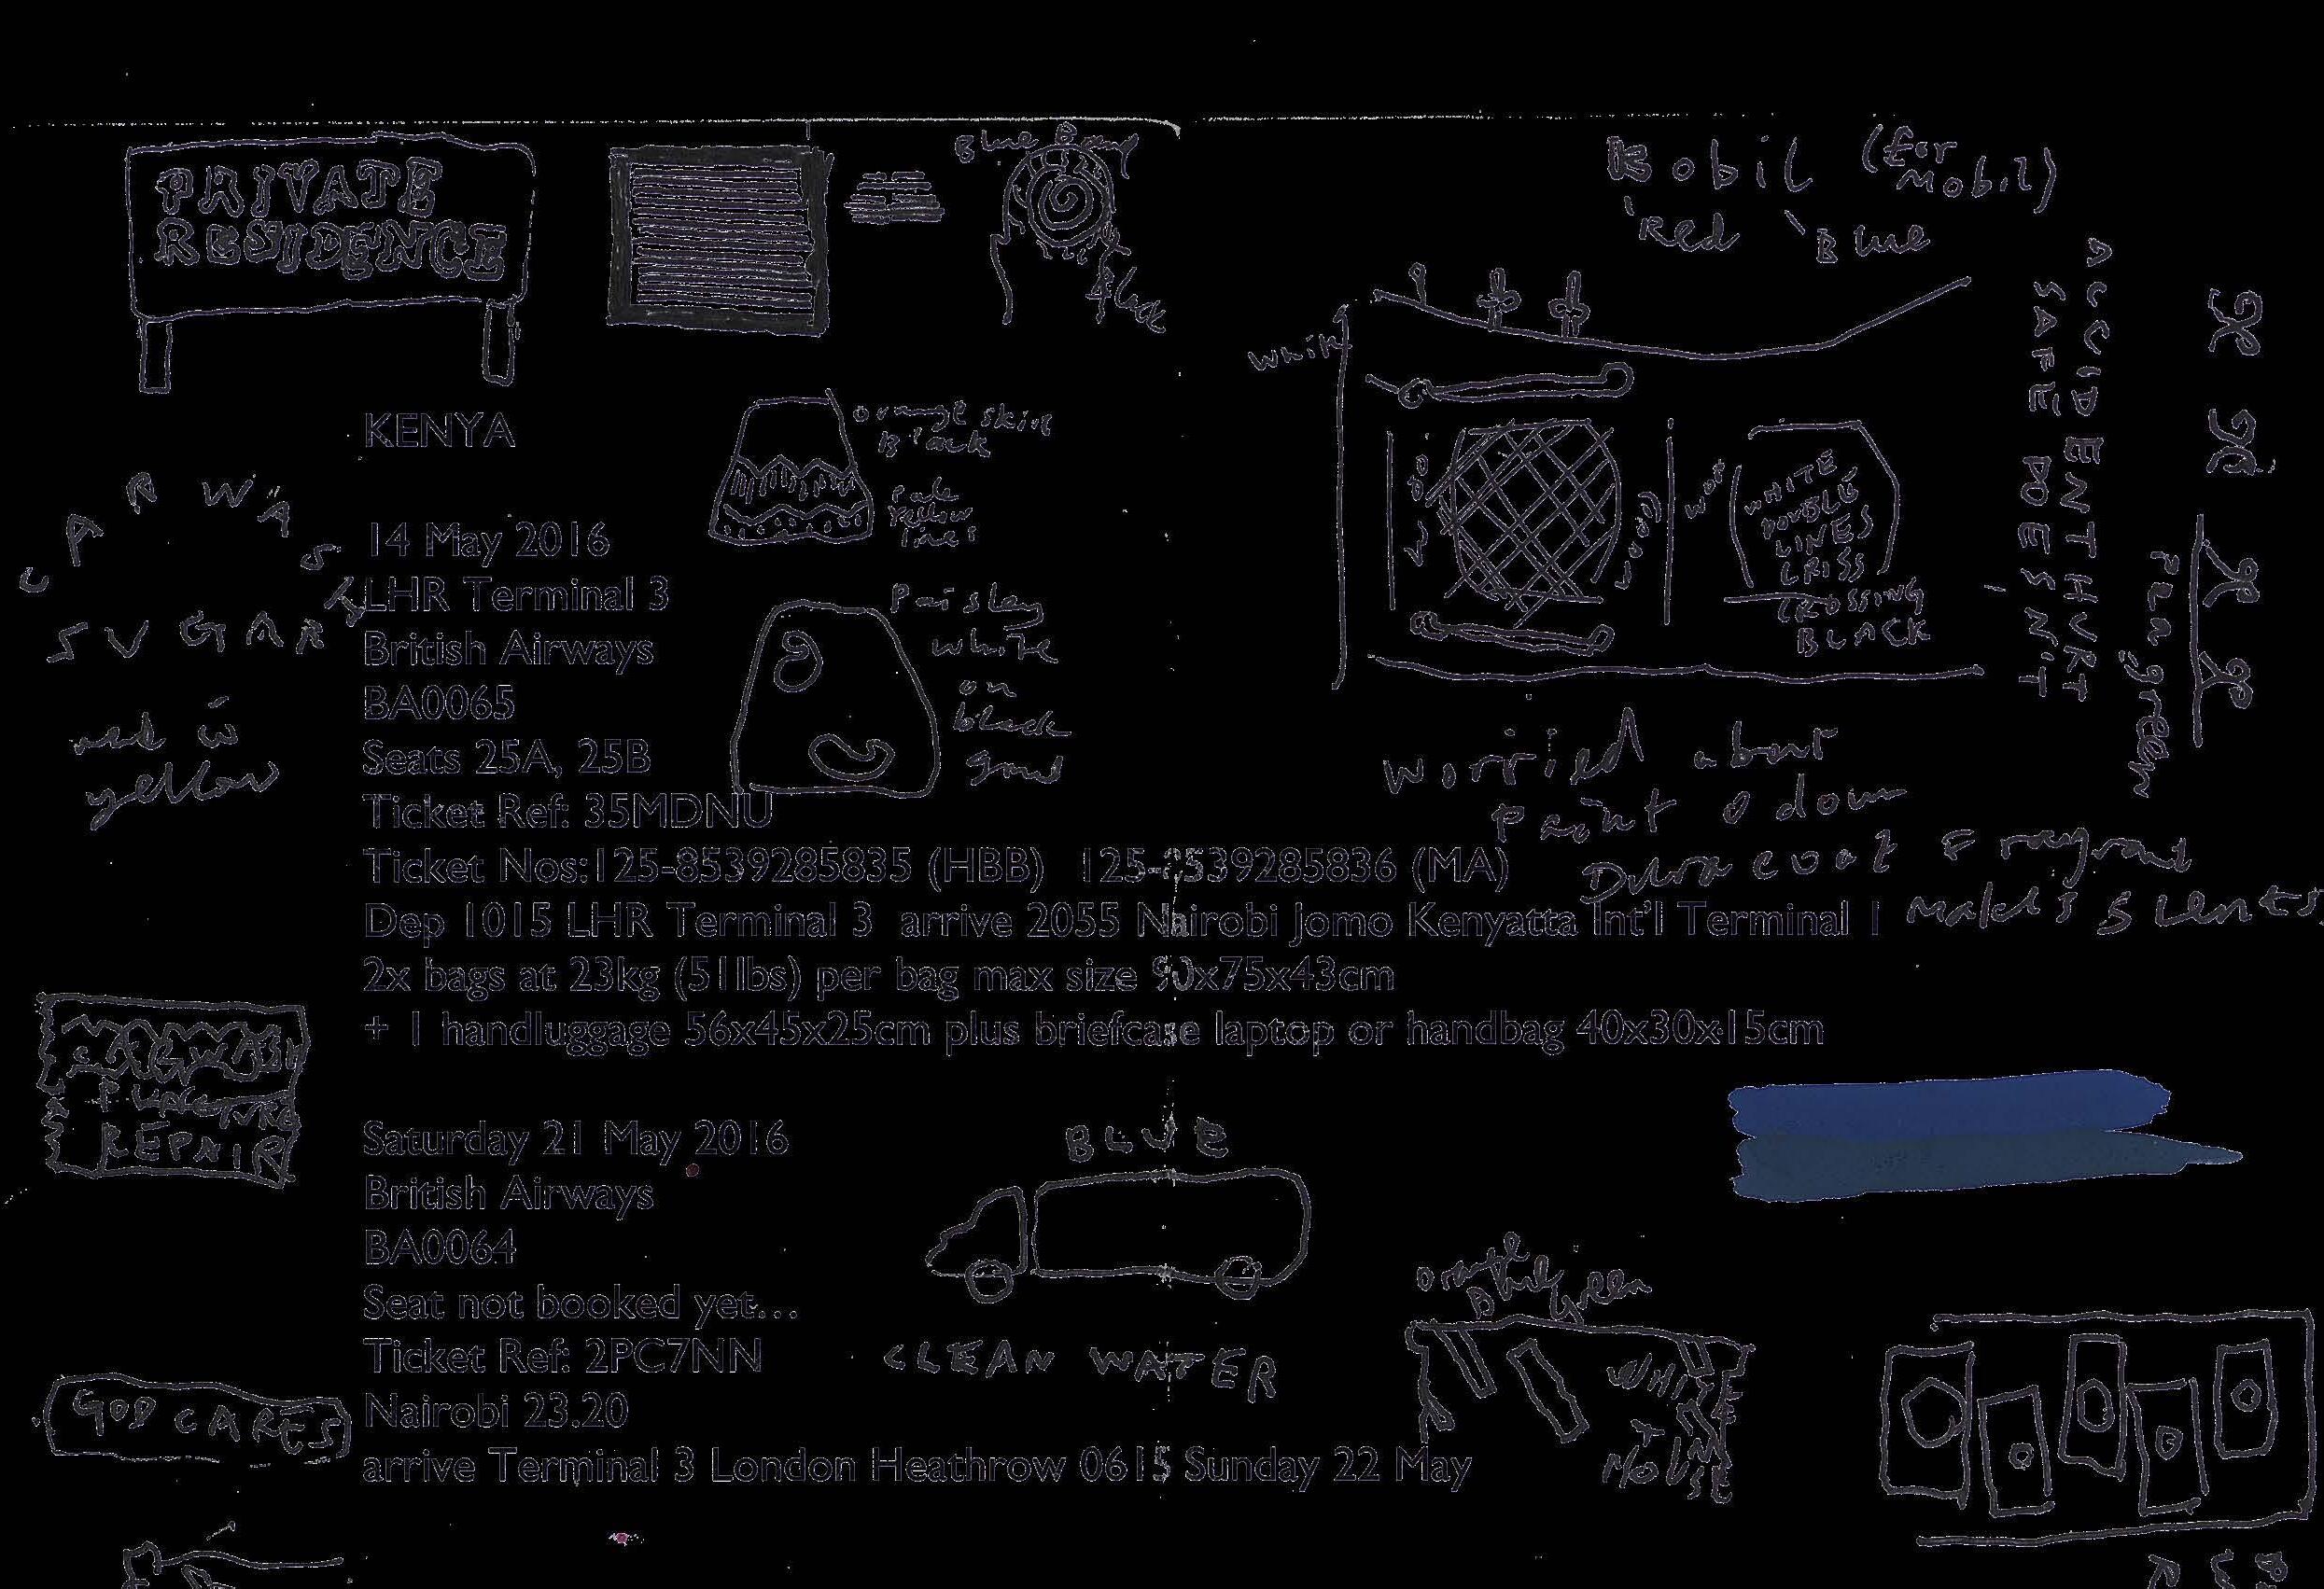 PRIVATE
RESIDENCE
Blue
Black
Kobil (for Mobil)
Red Blue
White
KENYA
orange skirt
Black
Pale
Yellow
lines
CAR WASH
SUGAR
red is
yellow
14 May 2016
LHR Terminal 3
British Airways
BA0065
Seats 25A, 25B
Ticket Ref: 35MDNU
Ticket Nos:125-8539285835 (HBB) 125-8539285836 (MA)
Dep 1015 LHR Terminal 3 arrive 2055 Nairobi Jomo Kenyatta Int'l Terminal 1
2x bags at 23kg (51lbs) per bag max size 90x75x43cm
+ 1 handluggage 56x45x25cm plus briefcase laptop or handbag 40x30x15cm
Paisley
white
on
black
WOOD
WOOD
WHITE
DOUBLE
LINES
CRISS
CROSSING
BLACK
ACCIDENT HURT
SAFE DOESN'T
Pea green
worried about
paint odour
Dura coat Fragrant
makes scents
CARWASH
PUNCTURE
REPAIR
Saturday 21 May 2016
British Airways
BA0064
Seat not booked yet...
Ticket Ref: 2PC7NN
Nairobi 23.20
arrive Terminal 3 London Heathrow 0615 Sunday 22 May
BLUE
CLEAN WATER
GOD CARES
orange
Blue
Green
WHITE
HOUSE